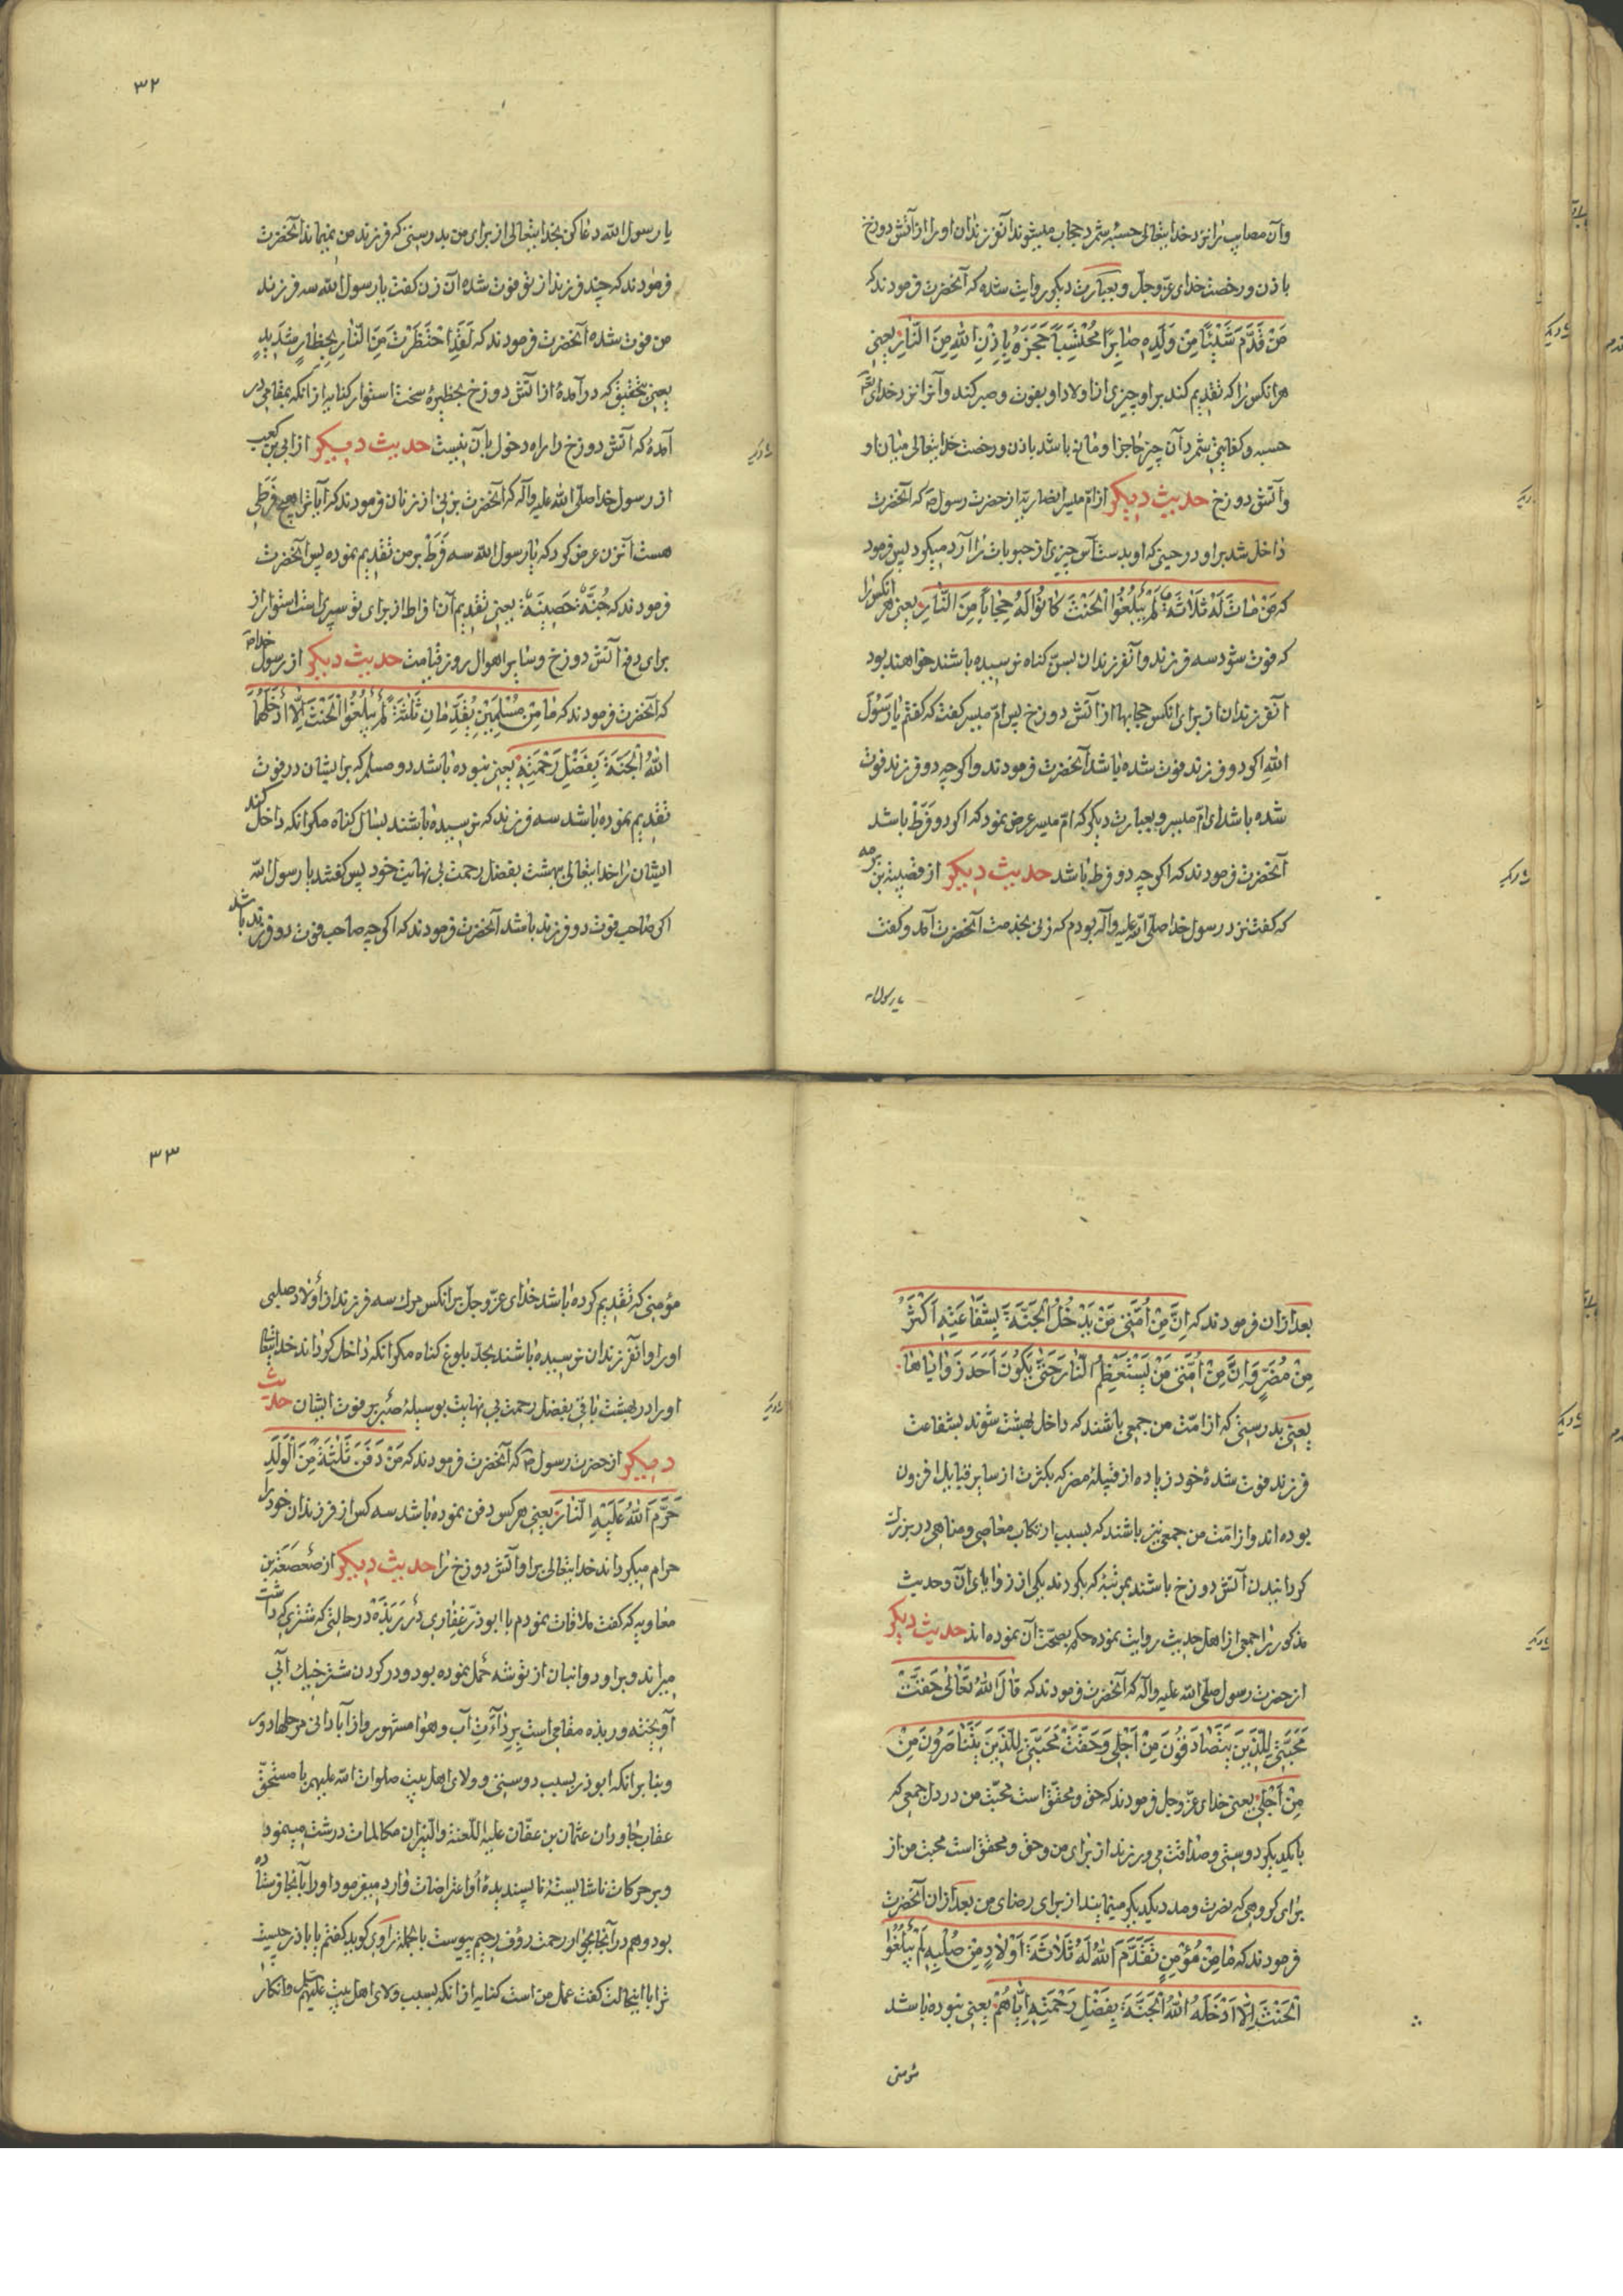 وآن مصایب را نزد خدایتعالی حسبه شمرد حجاب میشوند آنفرزندان او را از آتش دوزخ
باذن ورخصت خدای عزوجل وبعبارت دیکر روایت شده که آنحضرت فرمودند که
مَنْ قَدَّمَ شَیْئًا مِنْ وَلَدِهِ صابِرًا مُحْتَسِبًا حَجَبَوهُ بِاِذْنِ اللهِ مِنَ النّارِ یعنی
هر انکس را که تقدیم کند بر او چیزی از اولاد او بفوت وصبر کند وآنرا نزد خدای
حسبه وکفایتی شمرد آن چیز حاجز او مانع باشد باذن ورخصت خدایتعالی میان او
وآتش دوزخ حدیث دیکر از ام میسر انصاریه از حضرت رسول ص که آنحضرت
داخل شد بر او در حینی که او بدست آس چیزی از حبوبات را آرد میکرد پس فرمود
که مَنْ ماتَ لَهُ ثَلاثَةٌ لَمْ یَبْلُغُوا الْحِنْثَ کانُوا لَهُ حِجاباً مِنَ النّارِ یعنی هر انکس را
که فوت شود سه فرزند وآنفرزندان بسن کناه نرسیده باشند خواهند بود
آنفرزندان از برای انکس حجابها از آتش دوزخ پس ام میسر کفت که کفتم یا رَسُولَ
اللهِ اکر دو فرزند فوت شده باشد آنحضرت فرمودند واکرچه دو فرزند فوت
شده باشد ای ام میسر وبعبارت دیکر که ام میسر عرض نمود که اکر دو فَرَط باشد
آنحضرت فرمودند که اکرچه دو فرط باشد حدیث دیکر از قبیصة بن برمه
که کفت نزد رسول خدا صلی الله علیه وآله بودم که زنی بخدمت آنحضرت آمد وکفت
یا رسول الله
٣٢
یا رسول الله دعا کن بخدایتعالی از برای من بدرستی که فرزند من نمیماند آنحضرت
فرمودند که چند فرزند از تو فوت شده آن زن کفت یا رسول الله سه فرزند
من فوت شده آنحضرت فرمودند که لَقَدِ احْتَظَرْتِ مِنَ النّارِ بِحِظارٍ شَدیدٍ
یعنی بتحقیق که در آمدهٔ از آتش دوزخ بحظیرهٔ سخت استوار کنایه از انکه بمقامی در
آمدهٔ که آتش دوزخ را راه دخول بآن نیست حدیث دیکر از ابی بن کعب
از رسول خدا صلی الله علیه وآله که آنحضرت بزنی از زنان فرمودند که آیا ترا هیچ فَرَطی
هست آنزن عرض کرد که یا رسول الله سه فَرَط بر من تقدیم نموده پس آنحضرت
فرمودند که جُنَّةٌ حَصینَةٌ یعنی تقدیم آن افراط از برای تو سپری است استوار از
برای دفع آتش دوزخ وسایر اهوال روز قیامت حدیث دیکر از رسول خدا ص
که آنحضرت فرمودند که ما مِنْ مُسْلِمَیْنِ یُقَدِّمانِ ثَلٰثَةً لَمْ یَبْلُغُوا الْحِنْثَ اِلّا اَدْخَلَهُمَا
اللهُ الْجَنَّةَ بِفَضْلِ رَحْمَتِهِ یعنی نبوده باشد دو مسلم که بر ایشان در فوت
تقدیم نموده باشد سه فرزند که نرسیده باشند بسال کناه مکر انکه داخل کند
ایشان را خدایتعالی بهشت بفضل رحمت بی نهایت خود پس کفتند یا رسول الله
اکر صاحب فوت دو فرزند باشد آنحضرت فرمودند که اکرچه صاحب فوت دو فرزند باشد
بعد از ان فرمودند که اِنَّ مِنْ اُمَّتی مَنْ یَدْخُلُ الْجَنَّةَ بِشَفاعَتِهِ اَکْثَرُ
مِنْ مُضَرٍ وَاِنَّ مِنْ اُمَّتی مَنْ یَسْتَعْظِمُ النّارَ حَتّی یَکُونَ اَحَدَ زَوایاها
یعنی بدرستی که از امت من جمعی باشند که داخل بهشت شوند بشفاعت
فرزند فوت شدهٔ خود زیاده از قبیلهٔ مضر که بکثرت از سایر قبایل افزون
بوده اند واز امت من جمعی نیز باشند که بسبب ارتکاب معاصی ومناهی در بزرک
کردانیدن آتش دوزخ باشند بمرتبهٔ که بکردند یکی از زوایای آن وحدیث
مذکور را جمعی از اهل حدیث روایت نموده حکم بصحت آن نموده اند حدیث دیکر
از حضرت رسول صلی الله علیه وآله که آنحضرت فرمودند که قالَ اللهُ تَعالی حَقَّتْ
مَحَبَّتی لِلَّذینَ یَتَصادَقُونَ مِنْ اَجْلی وَحَقَّتْ مَحَبَّتی لِلَّذینَ یَتَناصَرُونَ مِنْ
مِنْ اَجْلی یعنی خدای عزوجل فرمودند که حق ومحقق است محبت من در دل جمعی که
با یکدیکر دوستی وصداقت می ورزند از برای من وحق ومحقق است محبت من از
برای کروهی که نصرت ومدد یکدیکر مینمایند از برای رضای من بعد از ان آنحضرت
فرمودند که ما مِنْ مُؤْمِنٍ تَقَدَّمَ اللهُ لَهُ ثَلاثَةَ اَوْلادٍ مِنْ صُلْبِهِ لَمْ یَبْلُغُوا
الْحِنْثَ اِلّا اَدْخَلَهُ اللهُ الْجَنَّةَ بِفَضْلِ رَحْمَتِهِ اِیّاهُمْ یعنی نبوده باشد
مؤمنی
٣٣
مؤمنی که تقدیم کرده باشد خدای عزوجل بر انکس مرک سه فرزند از اولاد صلبی
او را وآنفرزندان نرسیده باشند بحد بلوغ کناه مکر انکه داخل کرداند خدایتعالی
او را در بهشت باقی بفضل رحمت بی نهایت بوسیلهٔ صبر بر فوت ایشان حدیث
دیکر از حضرت رسول ص که آنحضرت فرمودند که مَنْ دَفَنَ ثَلٰثَةً مِنَ الْوَلَدِ
حَرَّمَ اللهُ عَلَیْهِ النّارَ یعنی هر کس دفن نموده باشد سه کس از فرزندان خود را
حرام میکرداند خدایتعالی بر او آتش دوزخ را حدیث دیکر از صعصعة بن
معاویه که کفت ملاقات نمودم با ابوذر غفاری در رَبَذَه در حالتی که شتری که داشت
میراند وبر او دو انبان از توشه حمل نموده بود ودر کردن شتر خیک آبی
آویخته وربذه مقامی است بردائت آب وهوا مشهور واز آبادانی مرحلها دور
وبنابر انکه ابوذر بسبب دوستی وولای اهل بیت صلوات الله علیهم با مستحق
عقاب جاودان عثمان بن عفان علیه اللعنة والنیران مکالمات درشت مینمود
وبر حرکات ناشایستهٔ ناپسندیدهٔ او اعتراضات وارد میفرمود او را بآنجا فرستاده
بود وهم در آنجا بجوار رحمت رؤف رحیم پیوست بالجمله راوی کوید کفتم یا باذر چیست
ترا با اینحالت کفت عمل من است کنایه از انکه بسبب ولای اهل بیت علیهم السلم وانکار